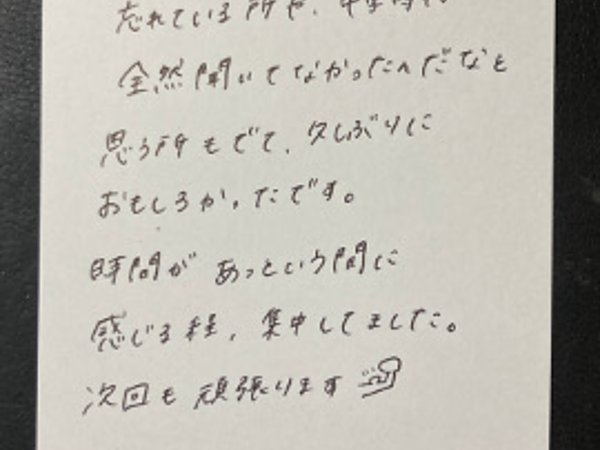 忘れている所や、中学時代
全然聞いてなかったんだなと
思う所もでて、久しぶりに
おもしろかったです。
時間があっという間に
感じる程、集中してました。
次回も頑張ります